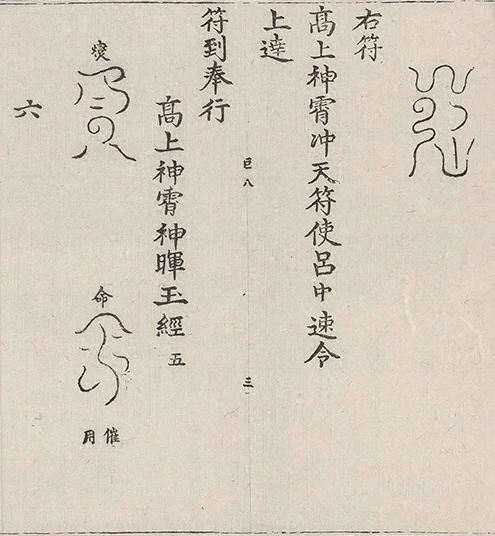 右符
高上神霄冲天符使呂中速令
上達
巨八
三
符到奉行
高上神霄神暉玉經
五
命
催用
六